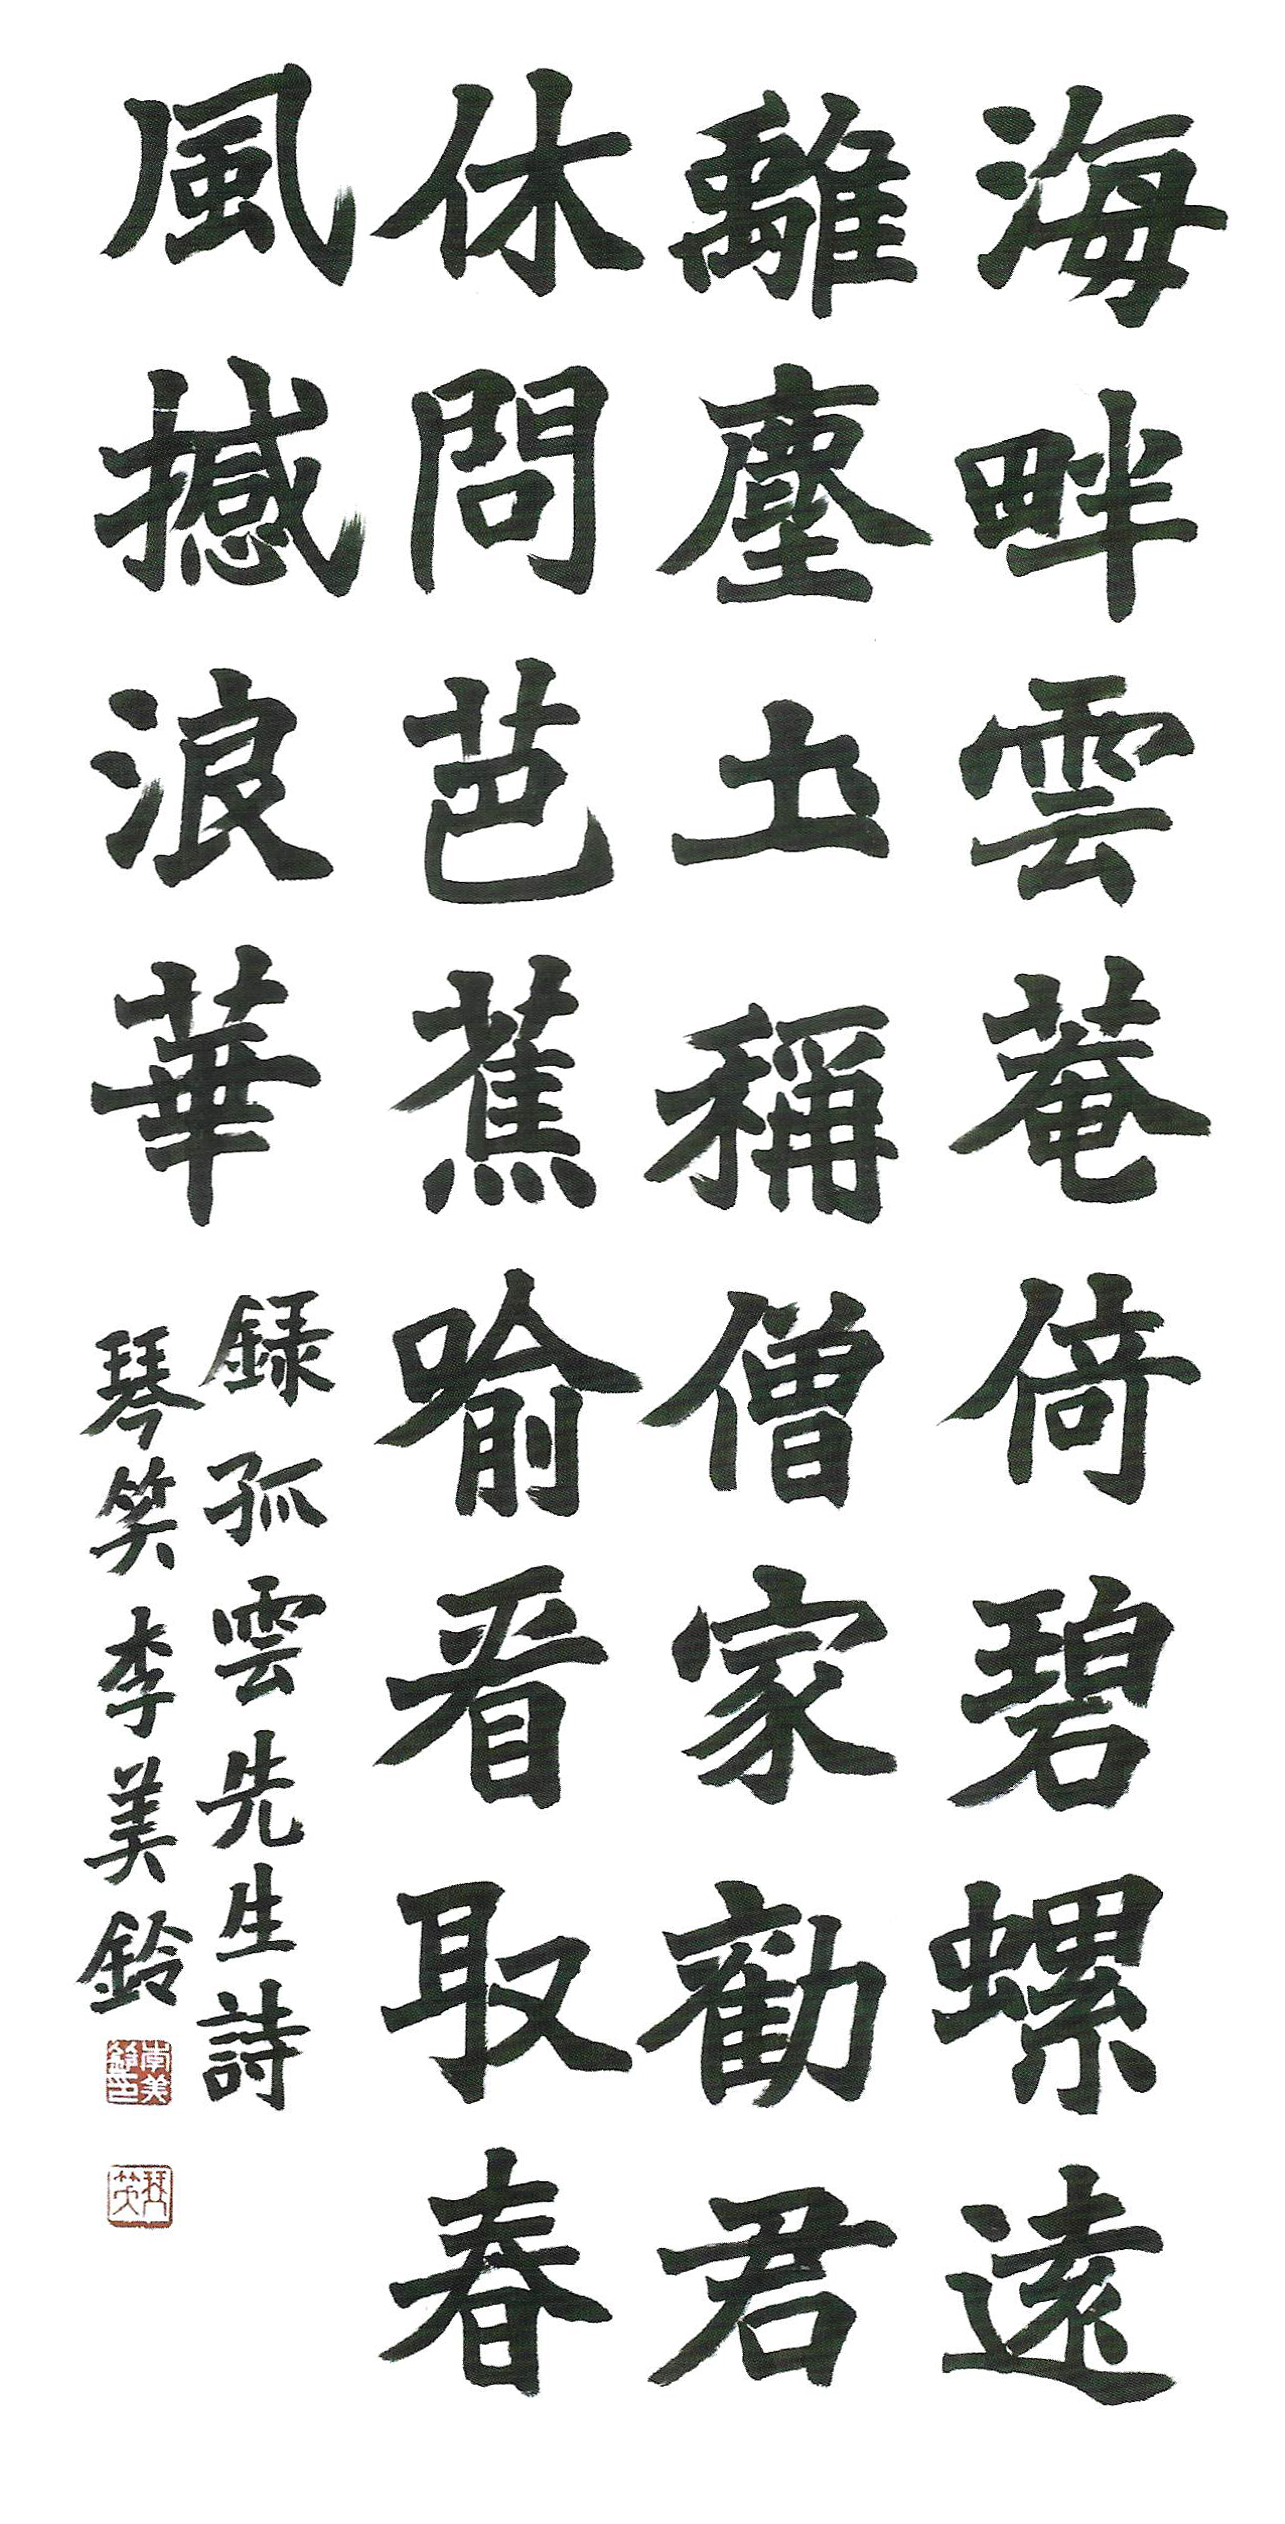 海畔雲菴倚碧螺遠
離塵土稱僧家勸君
休問芭蕉喻看取春
風撼浪華
錄孤雲先生詩
琴笑李美鈴
李美鈴印
琴笑